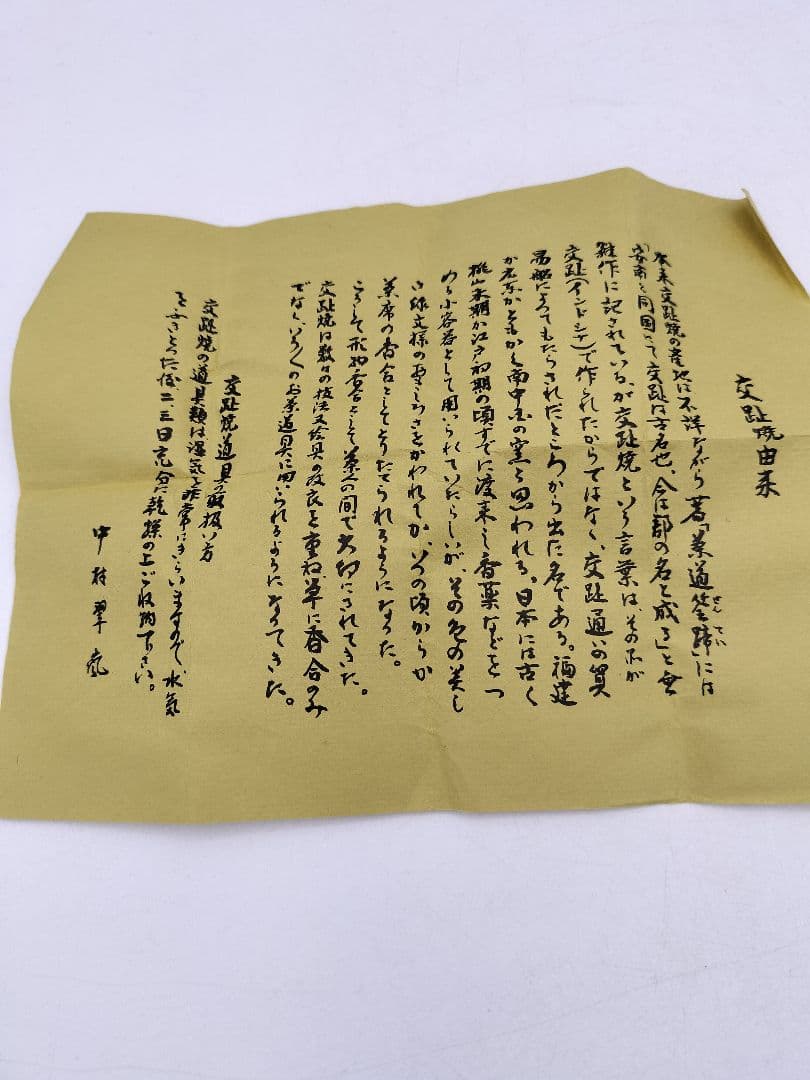 交趾焼由来
本来交趾焼の産地は不詳ながら著「茶道筌蹄には
せんてい
安南と同国にて交趾は古名也、今は郡の名と成る」と
雑作に記されている、が交趾焼という言葉は、その品が
交趾(インドシナ)で作られたからではなく、交趾通いの貿
易船によってもたらされたところから出た名である。福建
か広東かともかく南中国の窯と思われる。日本には古く
桃山末期か江戸初期の頃すでに渡来し香薬などをつ
める小容器として用いられていたらしいが、その色の美し
文様のおもしろさをかわれてか、いつの頃からか
茶席の香合としてとりたてられるようになった。
こうして形物香合として茶人の間で大切にされてきた。
交趾焼は数々の技法又絵具の改良を重ね、単に香合のみ
でなくいろいろのお茶道具に用いられるようになってきた。
交趾焼道具の取扱い方
交趾焼の道具類は湿気を非常にきらいますので、水気
をふきとった後二、三日充分に乾燥の上ご收納下さい。
中村翠嵐